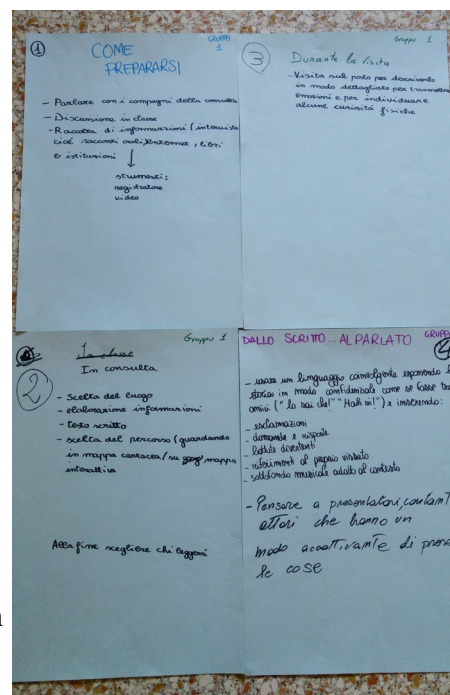 1
GRUPPO
1
COME
PREPARARSI
- Parlare con i compagni della consulta
- Discussione in classe
- Raccolta di informazioni (interviste
cioè racconti orali, internet, libri
e istituzioni
strumenti:
registratore
video
Gruppo 1
3
Durante la visita
- Visita sul posto per descriverlo
in modo dettagliato per trasmettere
emozioni e per individuare
alcune curiosità fisiche
Gruppo 1
2
In consulta
- Scelta del luogo
- elaborazione informazioni
- testo scritto
- scelta del percorso (guardando
in mappa cartacea/su mappa
interattiva
Alla fine scegliere chi leggerà
DALLO SCRITTO... AL PARLATO GRUPPO
4
- usare un linguaggio coinvolgente esponendo la
storia in modo confidenziale come se fosse tra
amici ("lo sai che!" "Mah sì!") e inserendo:
- esclamazioni
- domande e risposte
- battute divertenti
- riferimenti al proprio vissuto
- sottofondo musicale adatto al contesto
- Pensare a presentatori, cantanti
attori che hanno un
modo accattivante di
le cose